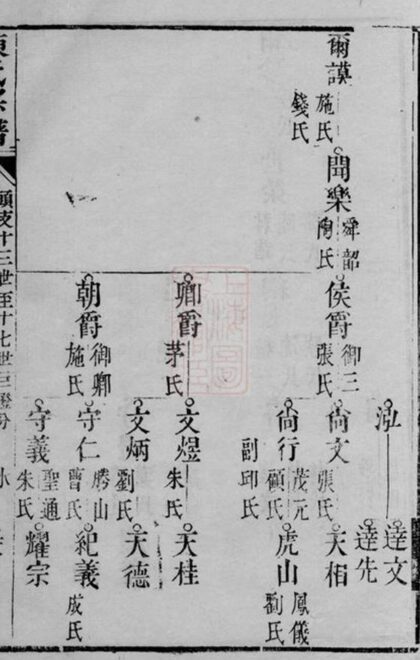 爾謨
施氏
錢氏
聞樂
舜韶
陶氏
侯爵
御三
張氏
卿爵
茅氏
朝爵
御卿
施氏
泓
尚文
張氏
尚行
茂元
顧氏
副邱氏
文煜
朱氏
文炳
劉氏
守仁
勝山
曹氏
守義
聖通
朱氏
達文
達先
天栢
虎山
鳳儀
劉氏
天桂
天德
紀義
成氏
耀宗
氏宗譜
頭支十三世至十七世